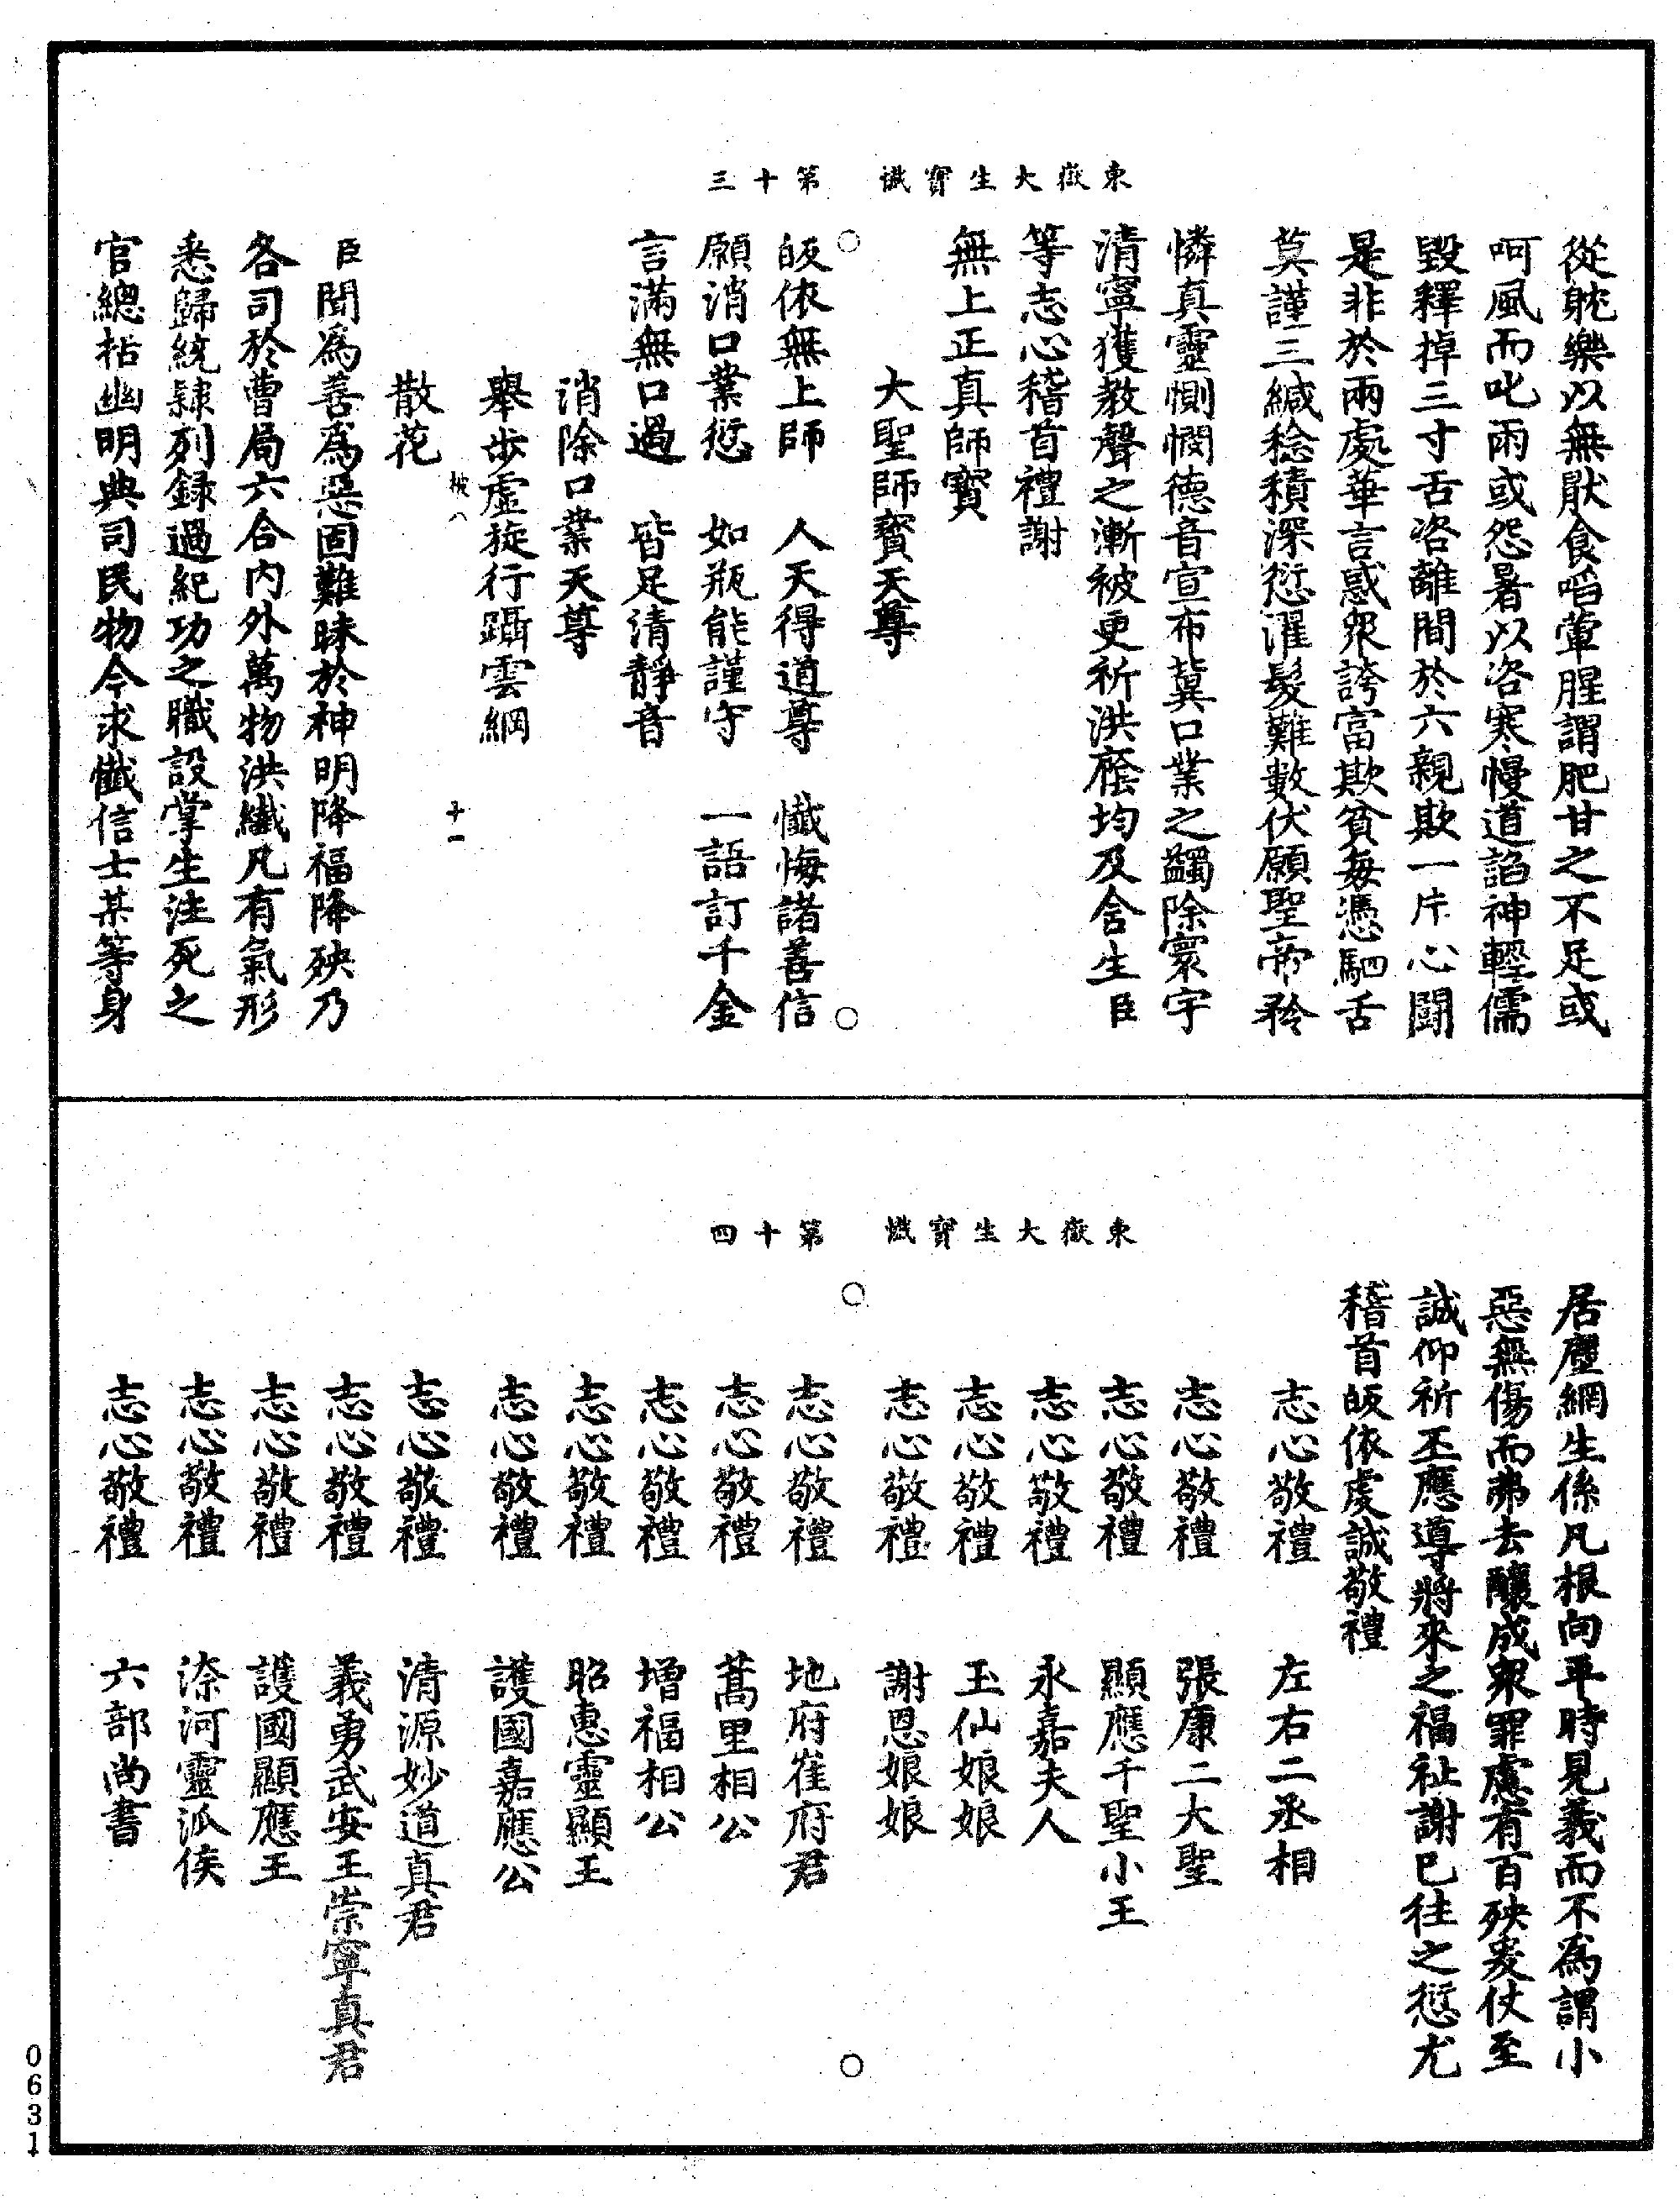 東嶽大生寶懺　第十三
從躭樂以無猒食啗葷腥謂肥甘之不足或
呵風而叱雨或怨暑以咨寒慢道謟神輕儒
毀釋掉三寸舌咨離間於六親欺一片心鬬
是非於兩處華言惑衆誇富欺貧每憑駟舌
莫謹三緘稔積深愆濯髮難數伏願聖帝矜
憐真靈惻憫德音宣布冀口業之蠲除寰宇
清寧獲教聲之漸被更祈洪廕均及含生臣
等志心稽首禮謝
無上正真師寶
大聖師寶天尊
皈依無上師　人天得道尊　懺悔諸善信
願消口業愆　如瓶能謹守　一語訂千金
言滿無口過　皆足清靜音
消除口業天尊
舉步虛旋行躡雲綱
棪八　十一
散花
臣聞爲善爲惡固難昧於神明降福降殃乃
各司於曹局六合内外萬物洪纖凡有氣形
悉歸統隷列録過紀功之職設掌生注死之
官總括幽明典司民物今求懺信士某等身
東嶽大生寶懺　第十四
居塵網生係凡根向平時見義而不爲謂小
惡無傷而弗去釀成衆罪慮有百殃爰仗至
誠仰祈丕應導將來之福祉謝已往之愆尤
稽首皈依虔誠敬禮
志心敬禮　左右二丞相
志心敬禮　張康二大聖
志心敬禮　顯應千聖小王
志心敬禮　永嘉夫人
志心敬禮　玉仙娘娘
志心敬禮　謝恩娘娘
志心敬禮　地府崔府君
志心敬禮　蒿里相公
志心敬禮　增福相公
志心敬禮　昭惠靈顯王
志心敬禮　護國嘉應公
志心敬禮　清源妙道真君
志心敬禮　義勇武安王崇寧真君
志心敬禮　護國顯應王
志心敬禮　渿河靈派侯
志心敬禮　六部尚書
0631